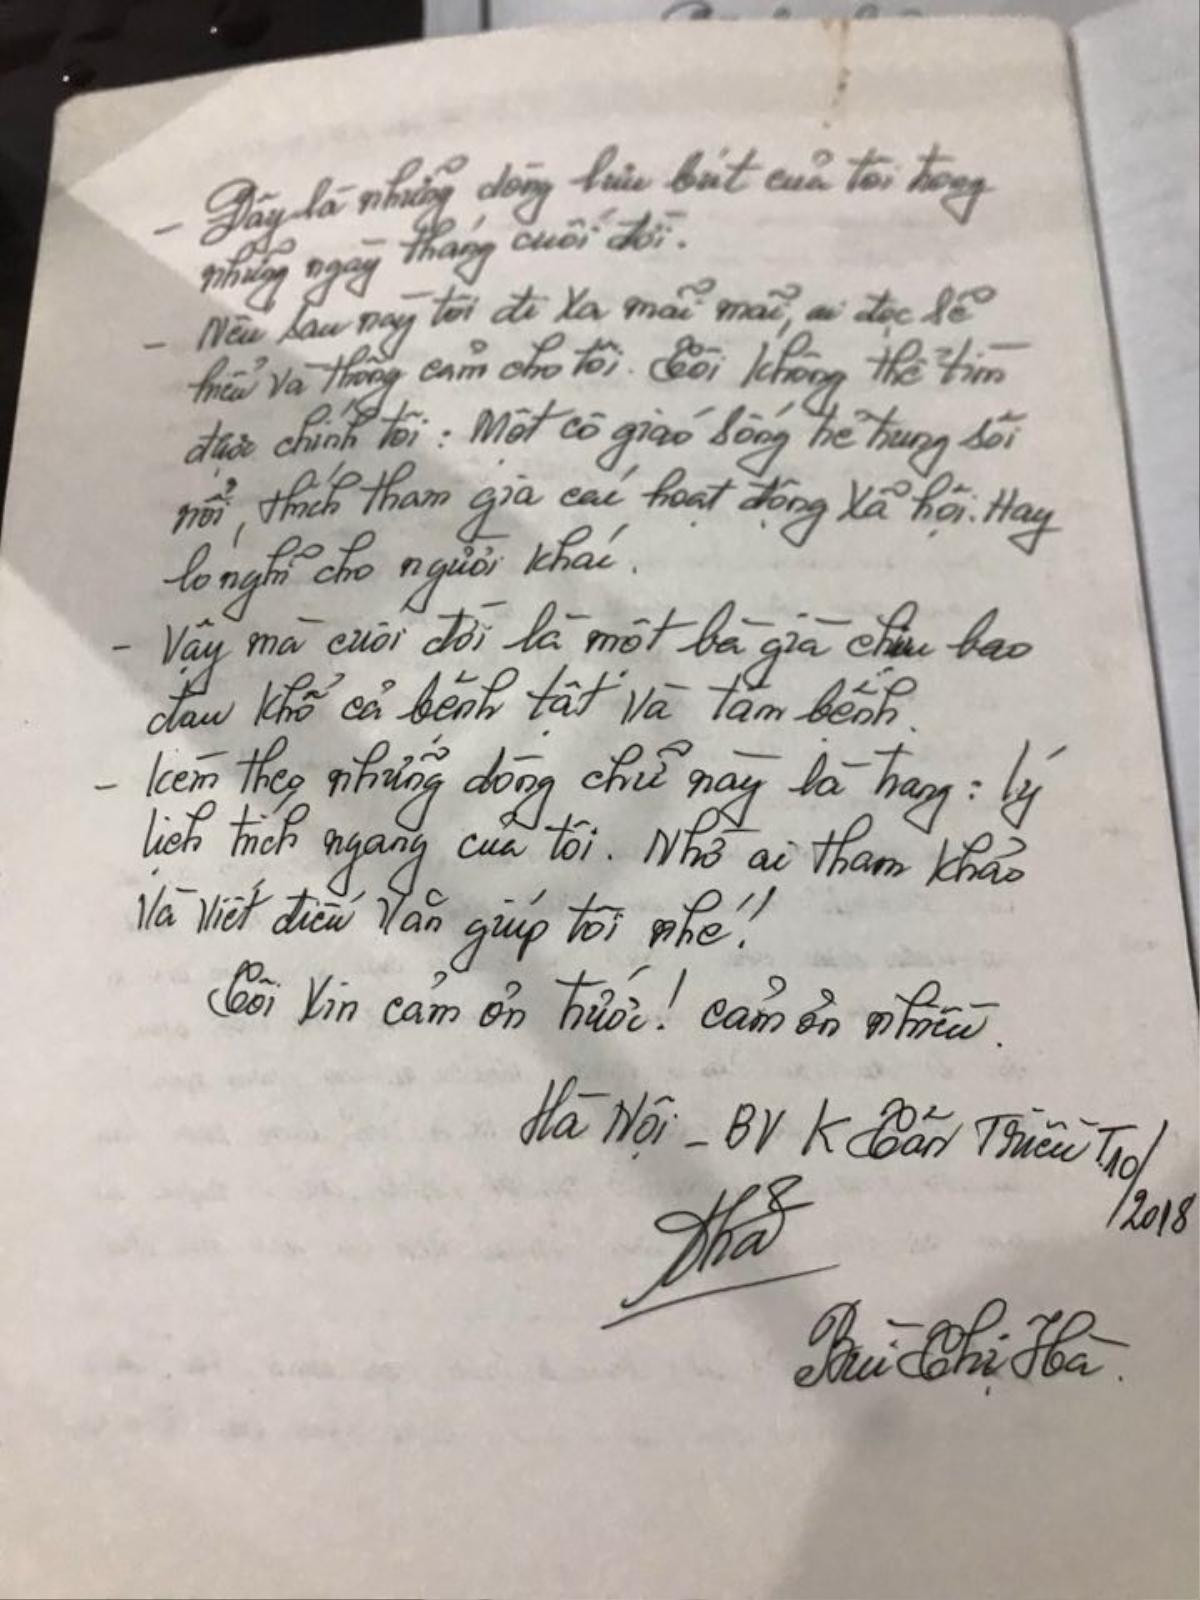 - Đây là những dòng lưu bút của tôi trong
những ngày tháng cuối đời.
- Nếu sau này tôi đi xa mãi mãi, ai đọc sẽ
hiểu và thông cảm cho tôi. Tôi không thể tìm
được chính tôi: Một cô giáo sống trẻ trung sôi
nổi, thích tham gia các hoạt động xã hội. Hay
lo nghĩ cho người khác.
- Vậy mà cuối đời là một bà già chịu bao
đau khổ cả bệnh tật và tâm bệnh.
- Kèm theo những dòng chữ này là trang: Lý
lịch trích ngang của tôi. Nhờ ai tham khảo
và viết điếu văn giúp tôi nhé!!
Tôi xin cảm ơn trước! cảm ơn nhiều.
Hà Nội - BV K Tân Triều T10/
2018
Bùi Thị Hà.